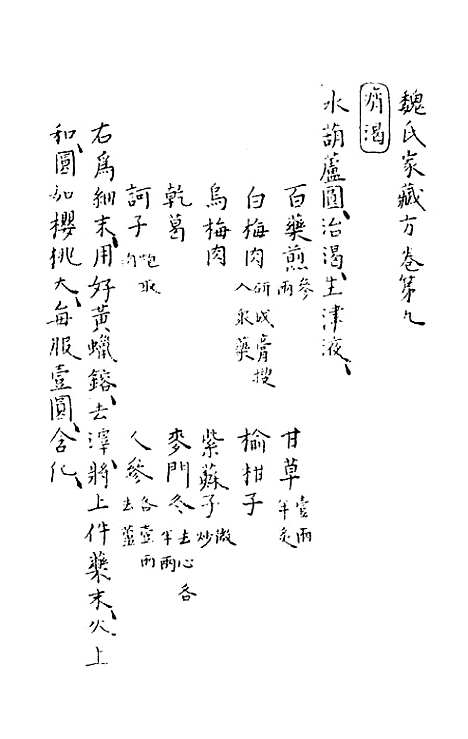 魏氏家藏方卷第九
痟渴
水葫蘆圓治渴生津液
百藥煎叁兩 甘草壹兩半炙
白梅肉研成膏搜入衆藥 榆柑子
烏梅肉 紫蘇子微炒
乾葛 麥門冬去心各半兩
訶子炮取肉 人參各壹兩去蘆
右爲細末用好黃蠟鎔去滓將上件藥末火上
和圓如櫻桃大每服壹圓含化